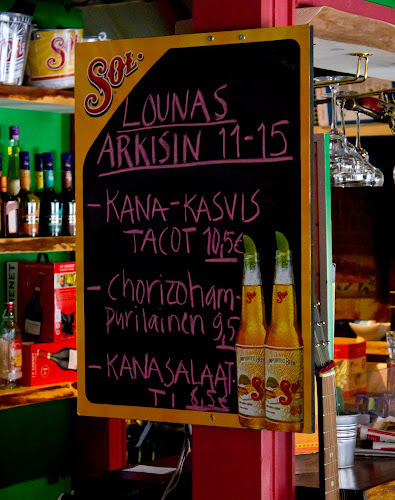 SOL.
LOUNAS
ARKISIN 11-15
- KANA-KASVIS
TACOT 10,5€
- Chorizoham-
purilainen 9,5
- KANASALAAT-
TI 8,5€
Sol
Sol